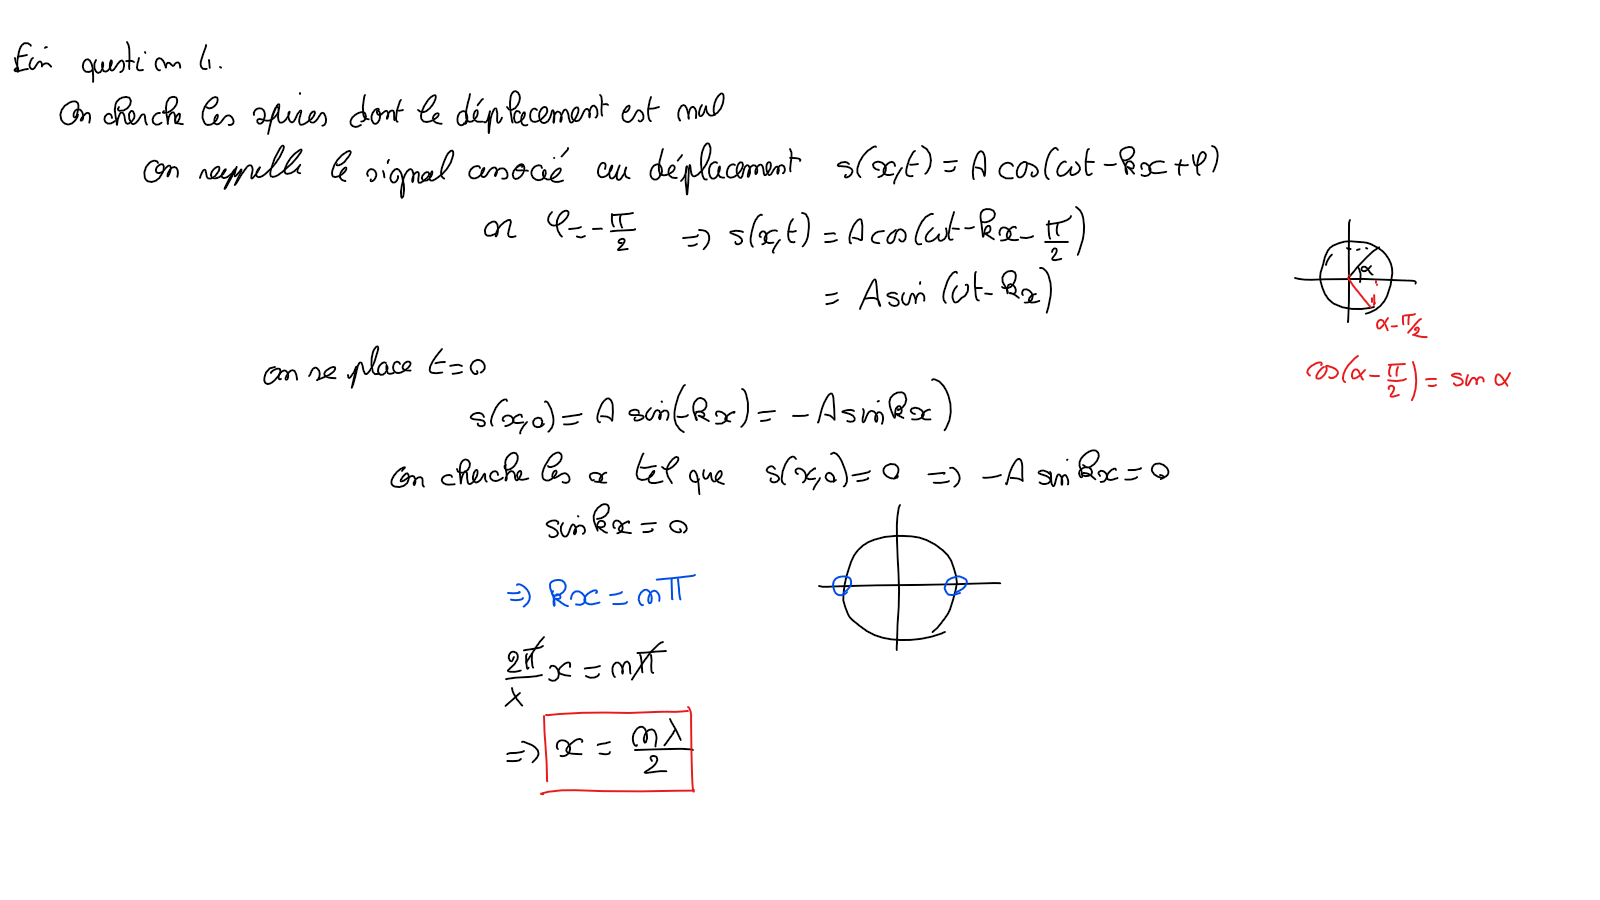 Fin question 4.
On cherche les spires dont le déplacement est nul
On rappelle le signal associé au déplacement s(x,t) = A cos(ωt - kx + φ)
or φ = -π/2 => s(x,t) = A cos(ωt - kx - π/2)
= A sin(ωt - kx)
α
α - π/2
cos(α - π/2) = sin α
on se place t = 0
s(x,0) = A sin(-kx) = -A sin kx)
On cherche les x tel que s(x,0) = 0 => -A sin kx = 0
sin kx = 0
=> kx = nπ
2π/λ x = nπ
=> x = nλ/2